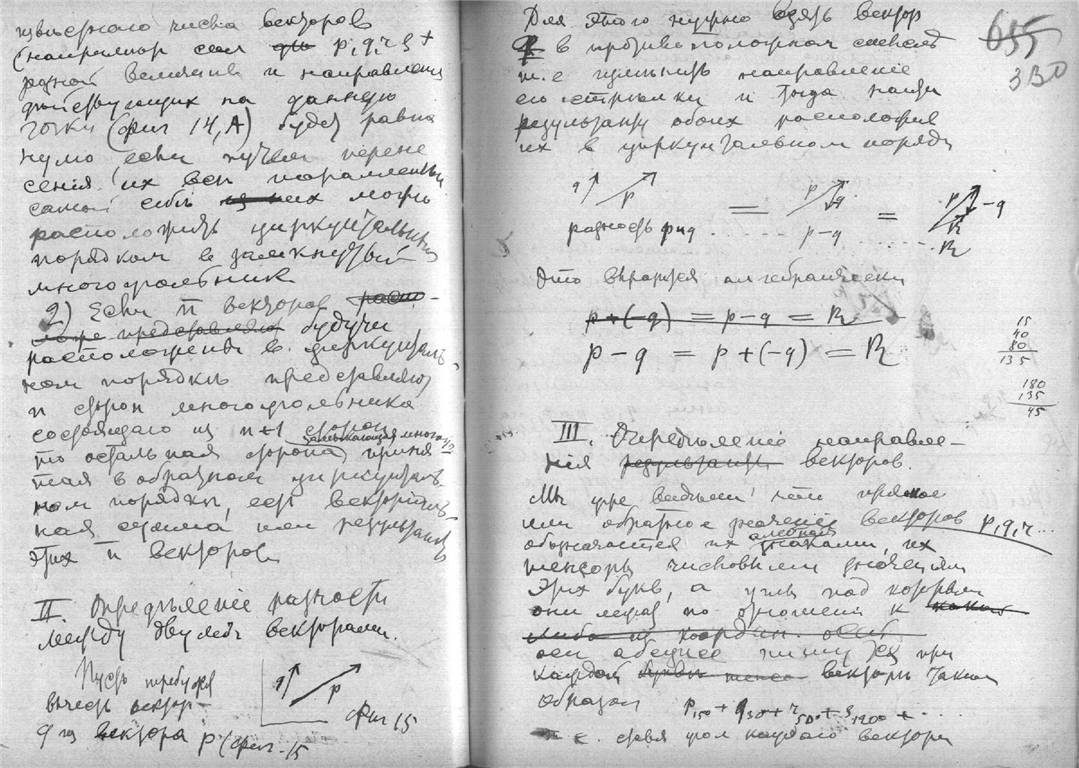 числа векторов
(например если p, q, r, s +
равной величины и направления
действующих на данную
точку (фиг 14, А) будет равна
нулю если путем перене
сения их всех параллельно
самим себе из них можно
расположить циркуитальным
порядком в замкнутый
многоугольник
2) Если n векторов
представляя будучи
расположены в циркуиталь-
ном порядке представляют
n сторон многоугольника
состоящаго из n+1 сторон
замыкающая много
то остальная сторона
тая в обратном циркуиталь
ном порядке, есть векториаль-
ная сумма или результант
этих n векторов
II. Определение разности
между двумя векторами.
Пусть требуется
вычесть вектор
q из вектора p (фиг. 15
q p
Фиг 15
Для этого нужно взять вектор
q в противоположном смысле
т.е изменить направление
его стрелки и тогда найти
результант обоих расположив
их в циркуитальном порядке
655
330
q p = p -q = p -q R
разность p и q . . . . . . p-q . . . . . R
Это выразится алгебраически
p+(-q) = p-q = R
p-q = p+(-q) = R
15
40
80
135
180
135
45
III. Определение направле-
ния результанта векторов.
Мы уже видели, что прямое
или обратное значение векторов p, q, r...
обозначается их знаками, их
тензоры числовыми значениями
этих букв, а углы под которыми
они лежат по отношению к
либо из координ. осей
оси абсцисс пишутся при
каждой букве вектора таким
образом
p₁₅₀ + q₃₀ + r₅₀₀ + s₁₂₀₀ + ...
т. е. ставя угол каждаго вектора